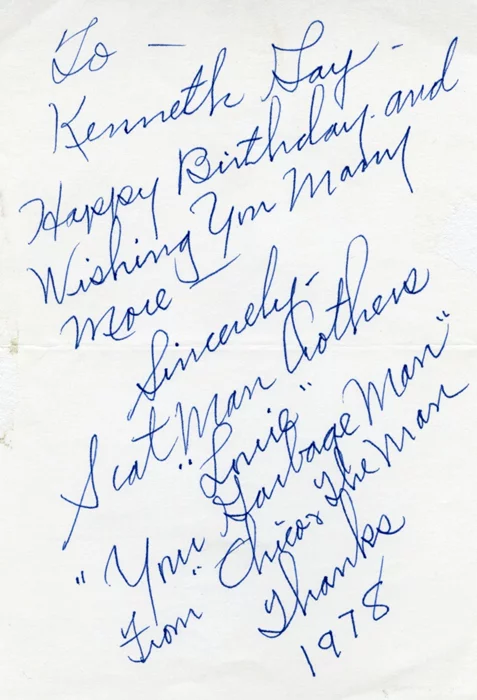 To –
Kenneth Gay –
Happy Birthday and
Wishing You Many
More –
Sincerely –
Scat Man Crothers
"Louie"
"Your Garbage Man"
From "Chico & The Man
Thanks
1978